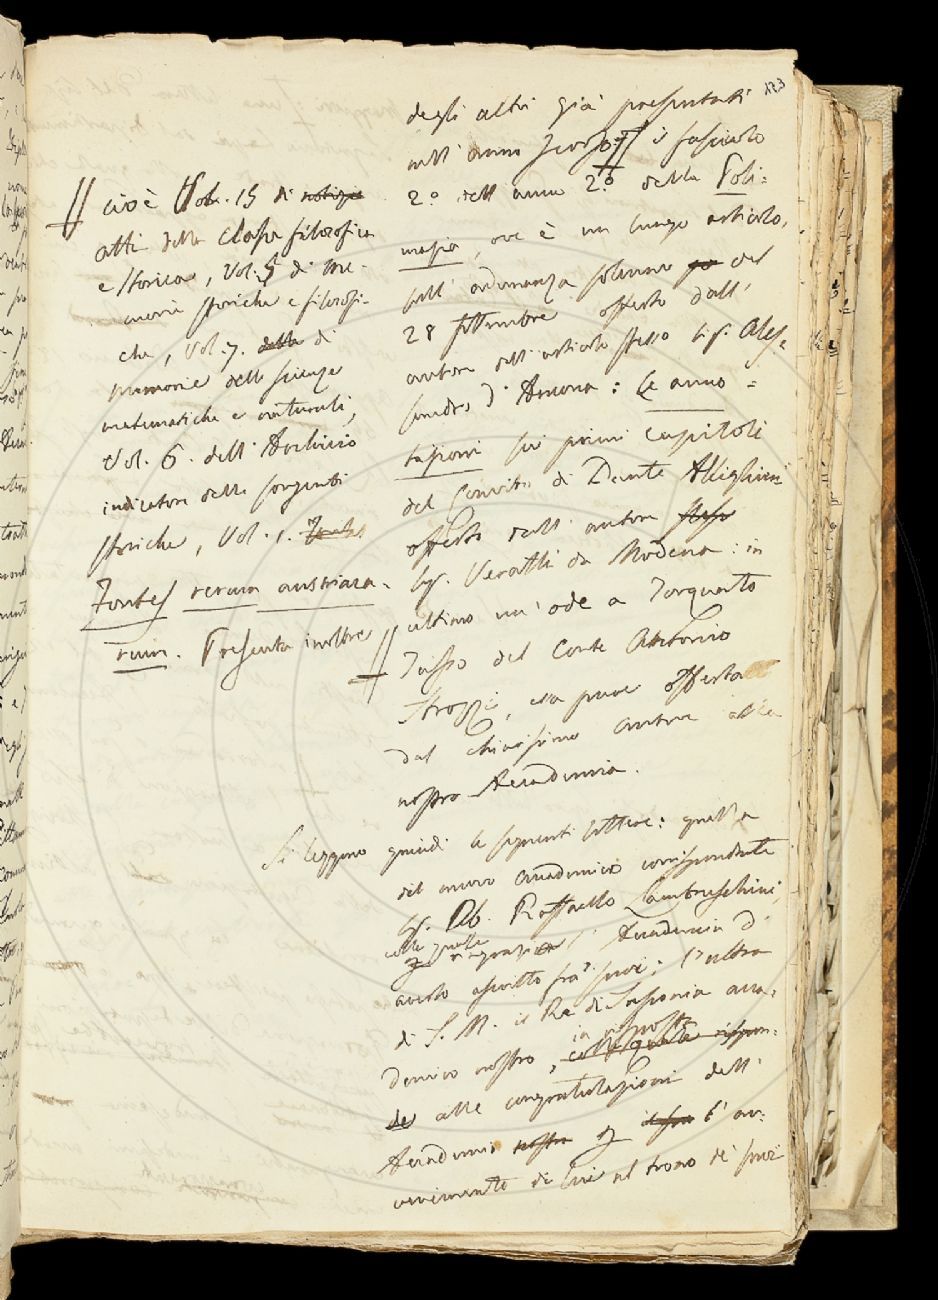 123
degli altri già presentati
nell'anno scorso: il fascicolo
2.º dell'anno 2.º della Poli=
masia, ove è un lungo articolo
sull'adunanza solenne del
28 settembre offerto dall'
autore dell'articolo stesso Sig. Ales=
sandro d'Ancona: le anno=
tazioni sui primi capitoli
del Convito di Dante Allighieri
offerto dall'autore stesso
Sig. Veratti da Modena: in
ultimo un'ode a Torquato
Tasso del Conte Antonio
Strozzi, essa pure offerta
dal chiarissimo autore alla
nostra Accademia.
Si leggono quindi le seguenti lettere: quella
del nuovo accademico corrispondente
Sig. Ab. Raffaello Lambruschini,
colla quale
ringrazia l'Accademia d'
averlo ascritto fra' suoi; l'altra
di S. M. il Re di Sassonia acca=
in risposta
demico nostro, colla quale rispon=
de alle congratulazioni dell'
Accademia nostra l'av=
venimento di lui al trono de' suoi
cioè Vol. 15 di notizie
atti della Classe filosofica
e storica, Vol. 5 di me=
morie storiche e filosofi=
che, Vol. 7. della di
memorie delle scienze
matematiche e naturali,
Vol. 6. dell'Archivio
indicatore delle sorgenti
storiche, Vol. 1. Fontes
Fontes rerum austriaca=
rum. Presenta inoltre